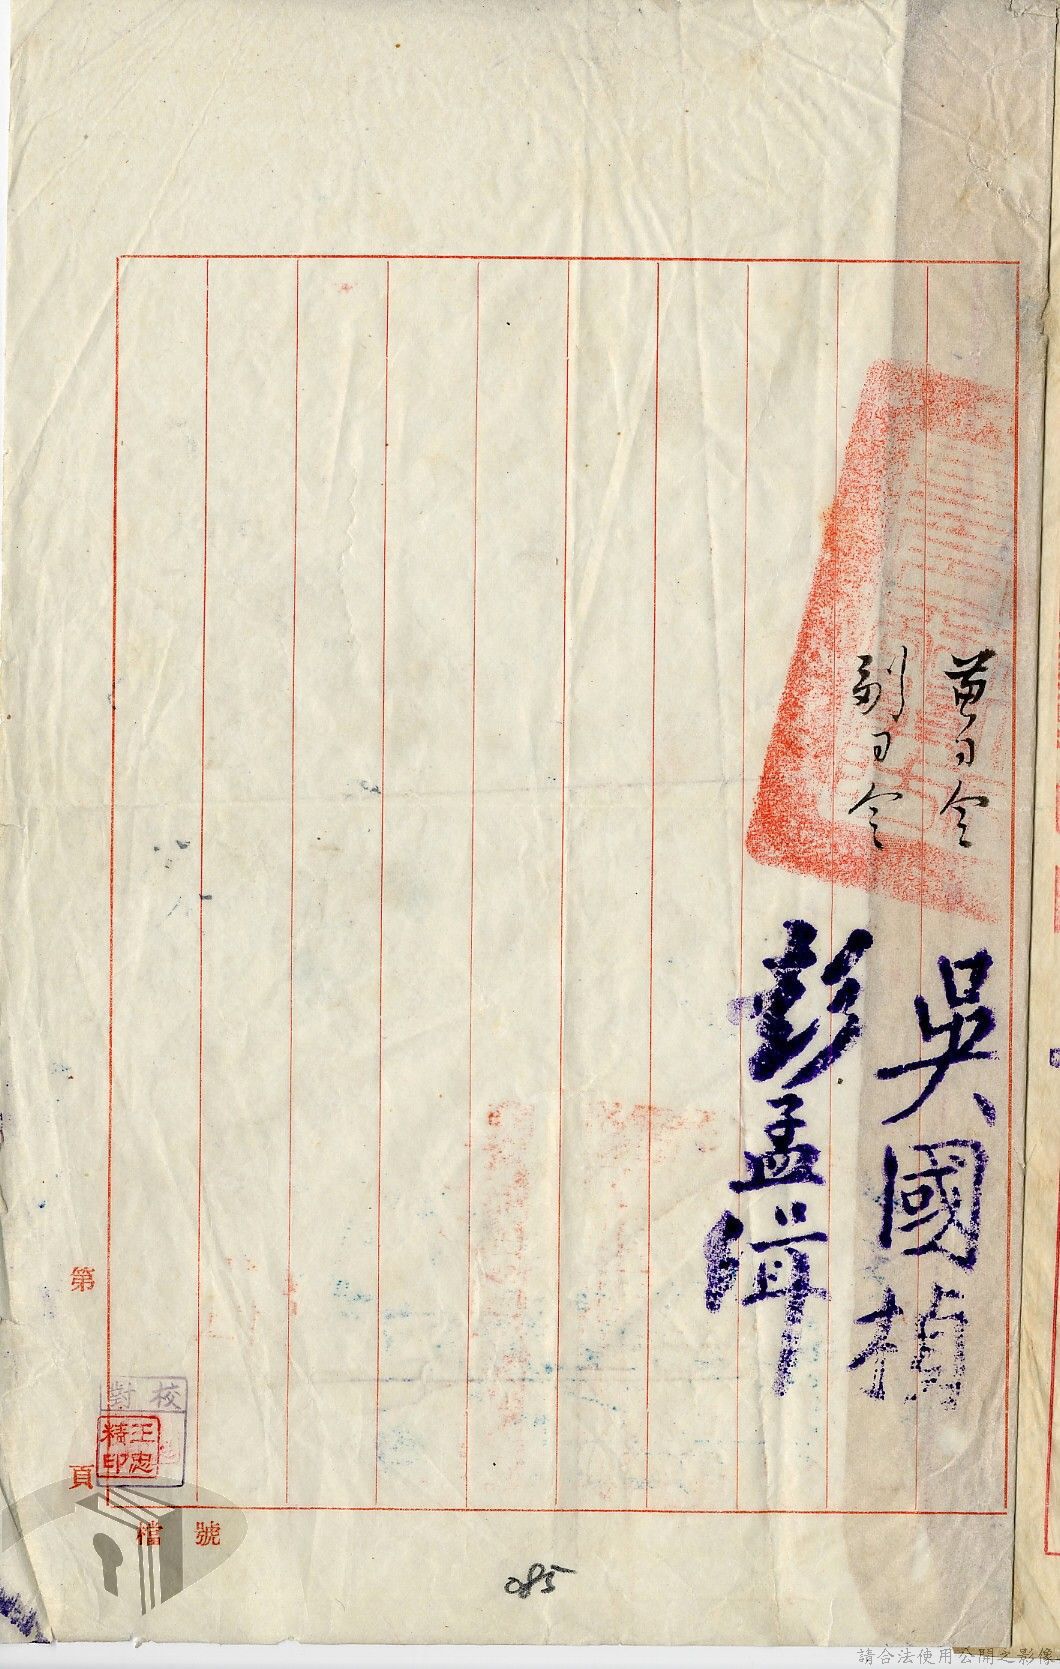 兼司令
吳國楨
副司令
彭孟緝
第
頁
校對
王忠
精印
檔號
085
請合法使用公開之影像